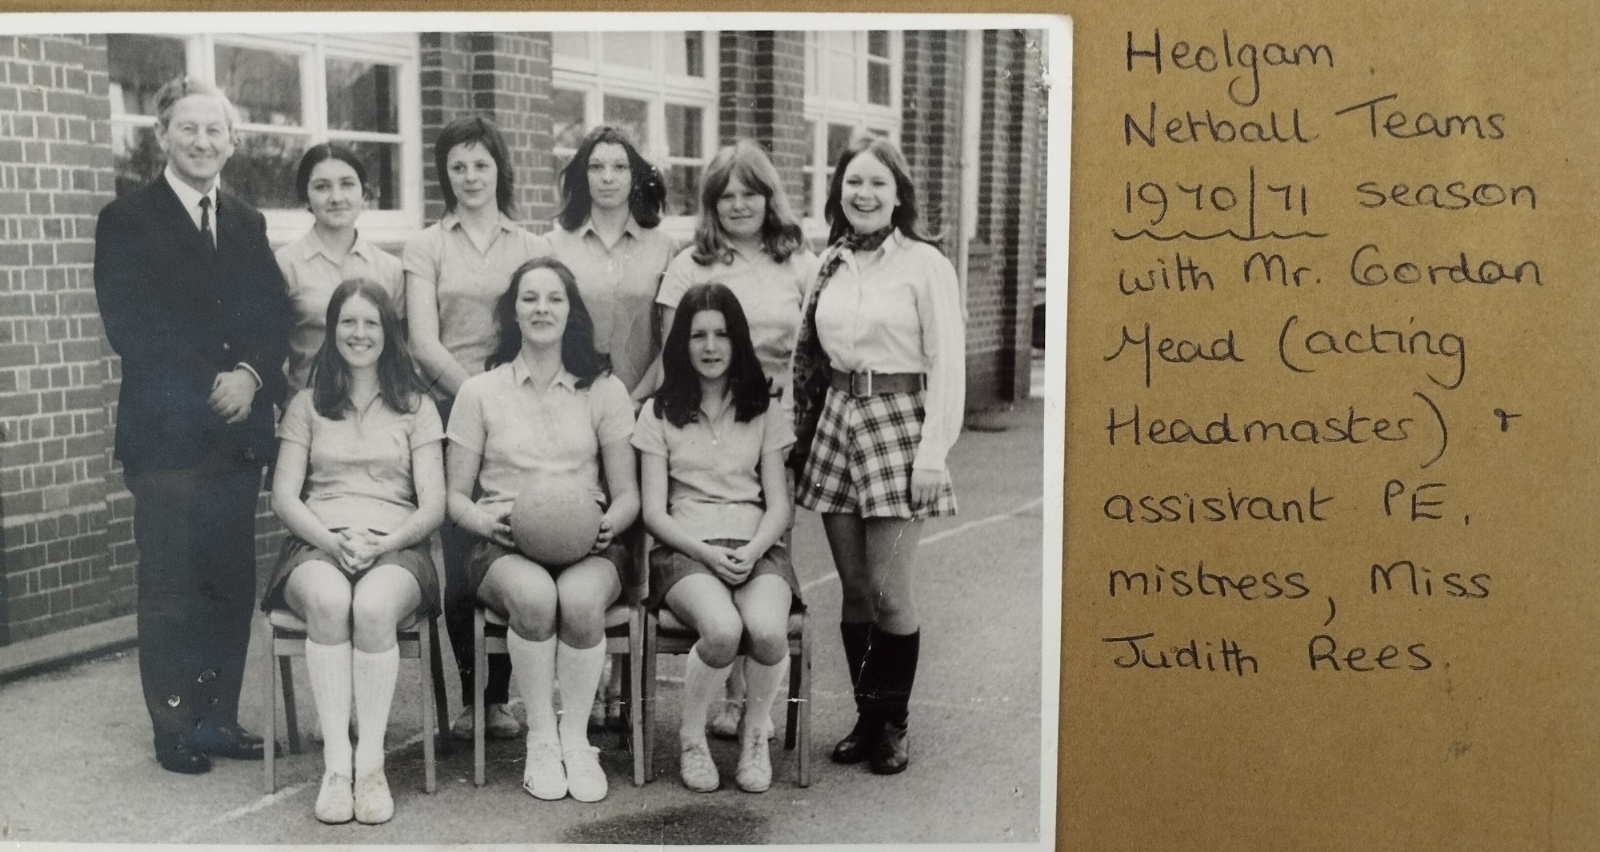 Heolgam
Netball Teams
1970/71 season
with Mr. Gordon
Mead (acting
Headmaster) &
assistant PE.
mistress, Miss
Judith Rees.